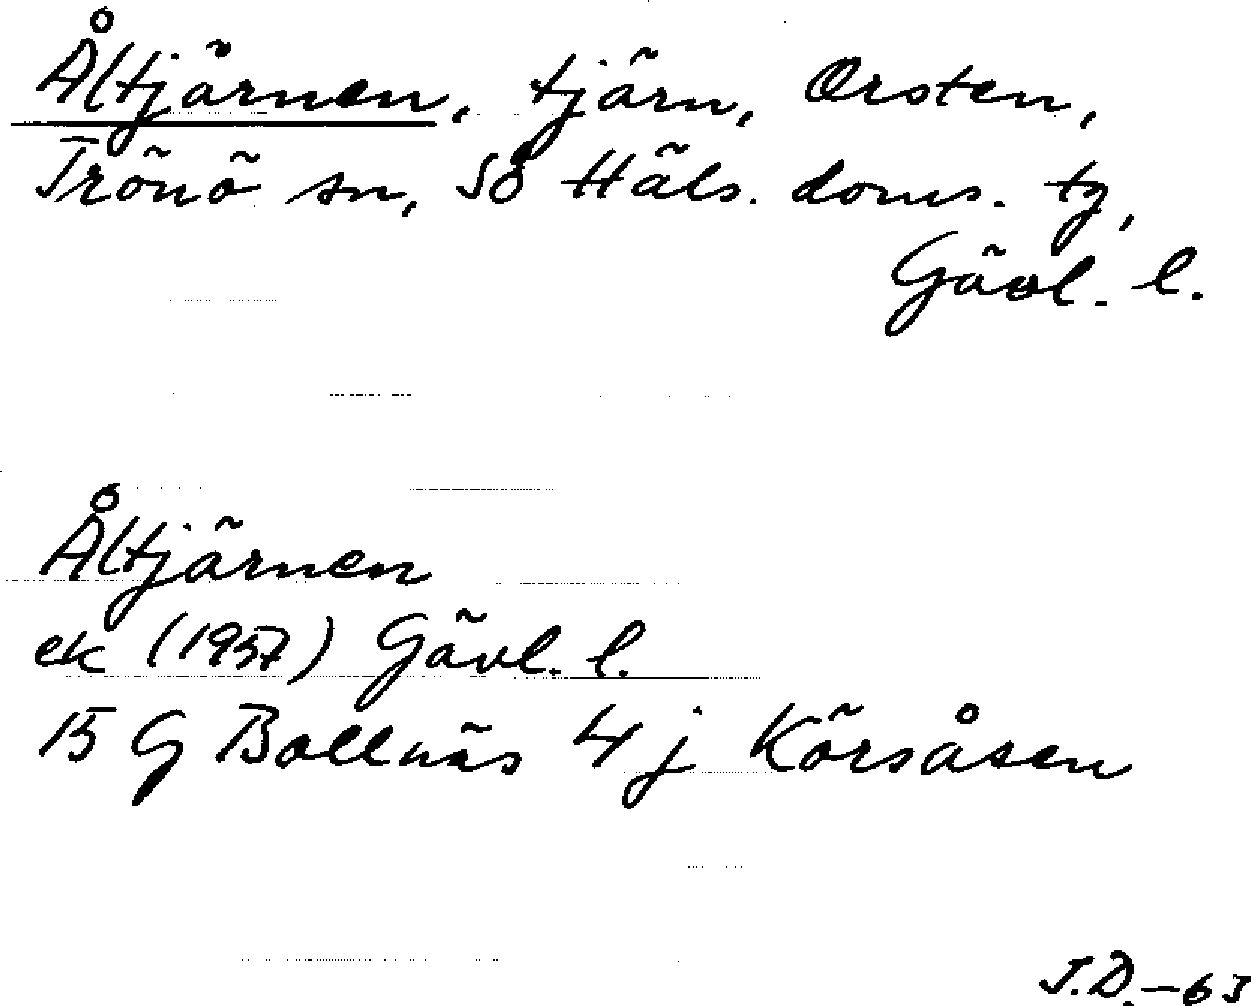 Åltjärnen, tjärn, Orsten,
Trönö sn, Sö Häls. doms. tg,
Gävl. l.
Åltjärnen
ek (1957) Gävl. l.
15 G Bollnäs 4 j Körsåsen
J.D.-63